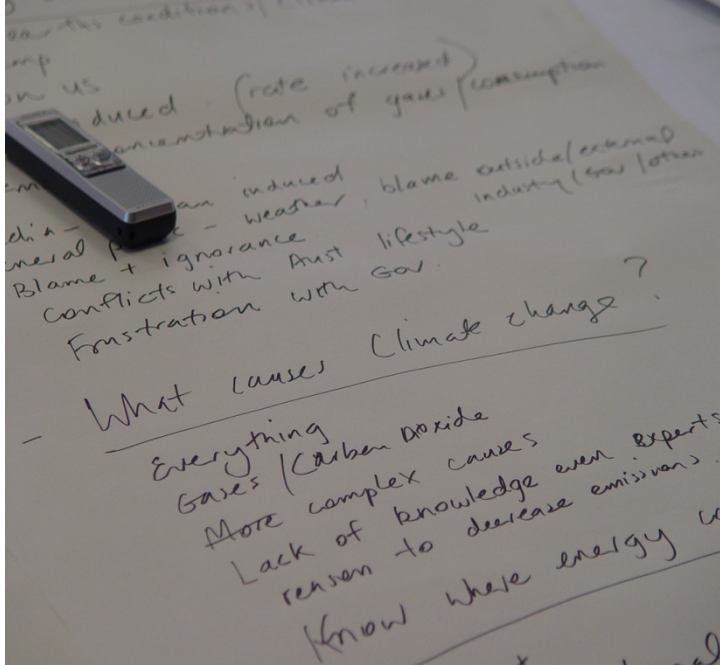 condition
on us
duced (rate increased)
of gases/consumption
an induced
- weather, blame outside/external
Blame + ignorance industry/Gov/other
Conflicts with Aust lifestyle
Frustration with Gov.
- What causes Climate change?
Everything
Gases/Carbon Dioxide
More complex causes
Lack of knowledge even experts
reason to decrease emissions
Know where energy